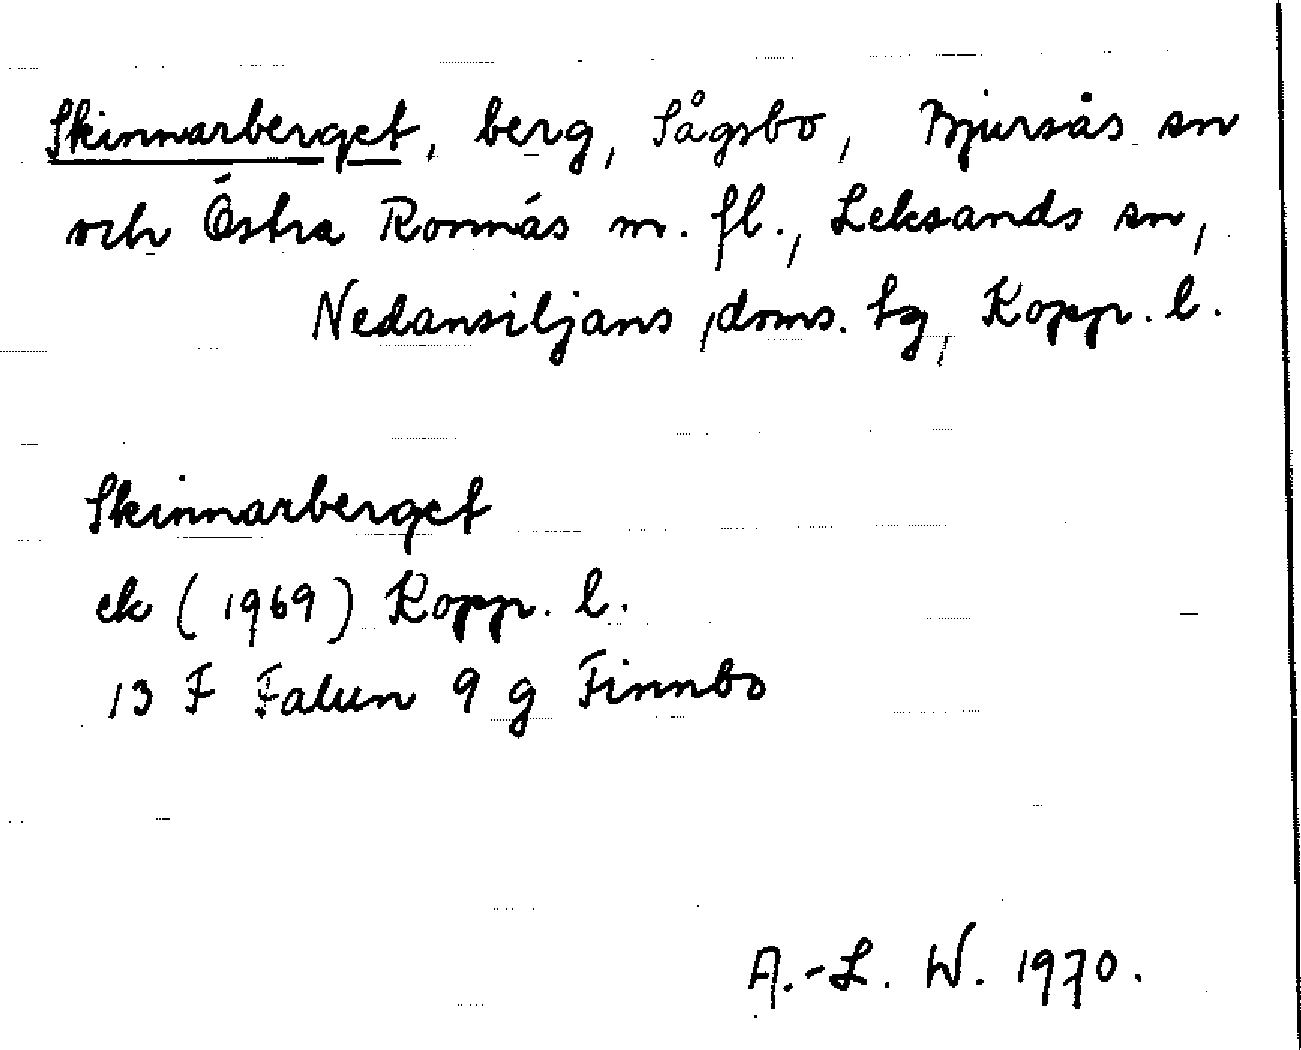 Skinnarberget, berg, Sågsbo, Bjursås sn
och Östra Ronnås m. fl., Leksands sn,
Nedansiljans doms. tg, Kopp. l.
Skinnarberget
ek (1969) Kopp. l.
13 F Falun 9 g Finnbo
A.-L. W. 1970.